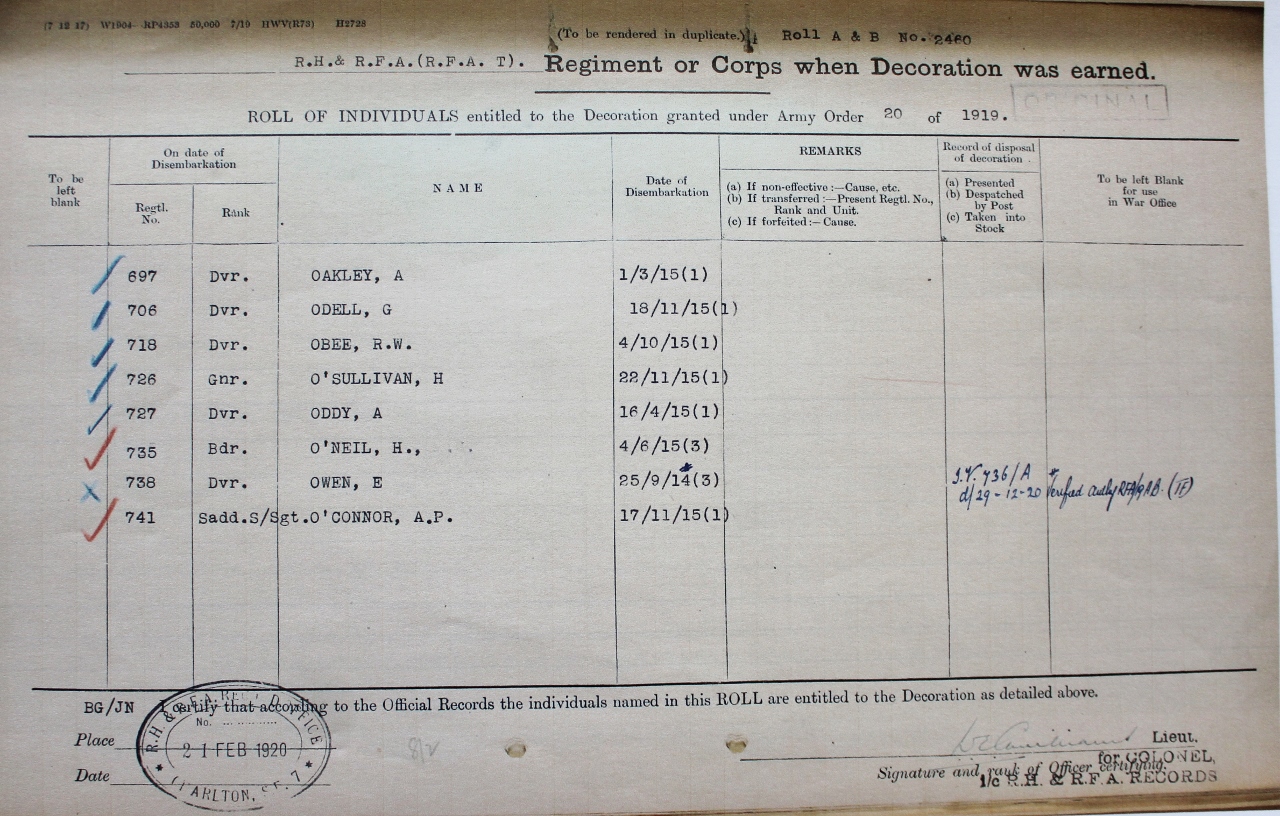 (7 12 17) W1904-RP4353 50,000 7/19 HWV(R73) H2728
(To be rendered in duplicate.) Roll A & B No. 2460
R.H.& R.F.A.(R.F.A. T). Regiment or Corps when Decoration was earned.
ORIGINAL
ROLL OF INDIVIDUALS entitled to the Decoration granted under Army Order 20 of 1919.
To be left blank
On date of Disembarkation
Regtl. No.
Rank
NAME
Date of Disembarkation
REMARKS
(a) If non-effective :—Cause, etc.
(b) If transferred :—Present Regtl. No., Rank and Unit.
(c) If forfeited :—Cause.
Record of disposal of decoration
(a) Presented
(b) Despatched by Post
(c) Taken into Stock
To be left Blank for use in War Office
697 Dvr. OAKLEY, A 1/3/15(1)
706 Dvr. ODELL, G 18/11/15(1)
718 Dvr. OBEE, R.W. 4/10/15(1)
726 Gnr. O'SULLIVAN, H 22/11/15(1)
727 Dvr. ODDY, A 16/4/15(1)
735 Bdr. O'NEIL, H., 4/6/15(3)
738 Dvr. OWEN, E 25/9/14*(3) 736/A d/29-12-20 * Verified
741 Sadd.S/Sgt. O'CONNOR, A.P. 17/11/15(1)
BG/JN I certify that according to the Official Records the individuals named in this ROLL are entitled to the Decoration as detailed above.
R.H. & R.F.A. RECORD OFFICE
No. ..............
21 FEB 1920
CHARLTON, S.E. 7
Place
Date
Lieut.
for COLONEL,
Signature and rank of Officer certifying.
I/c R.H. & R.F.A. RECORDS